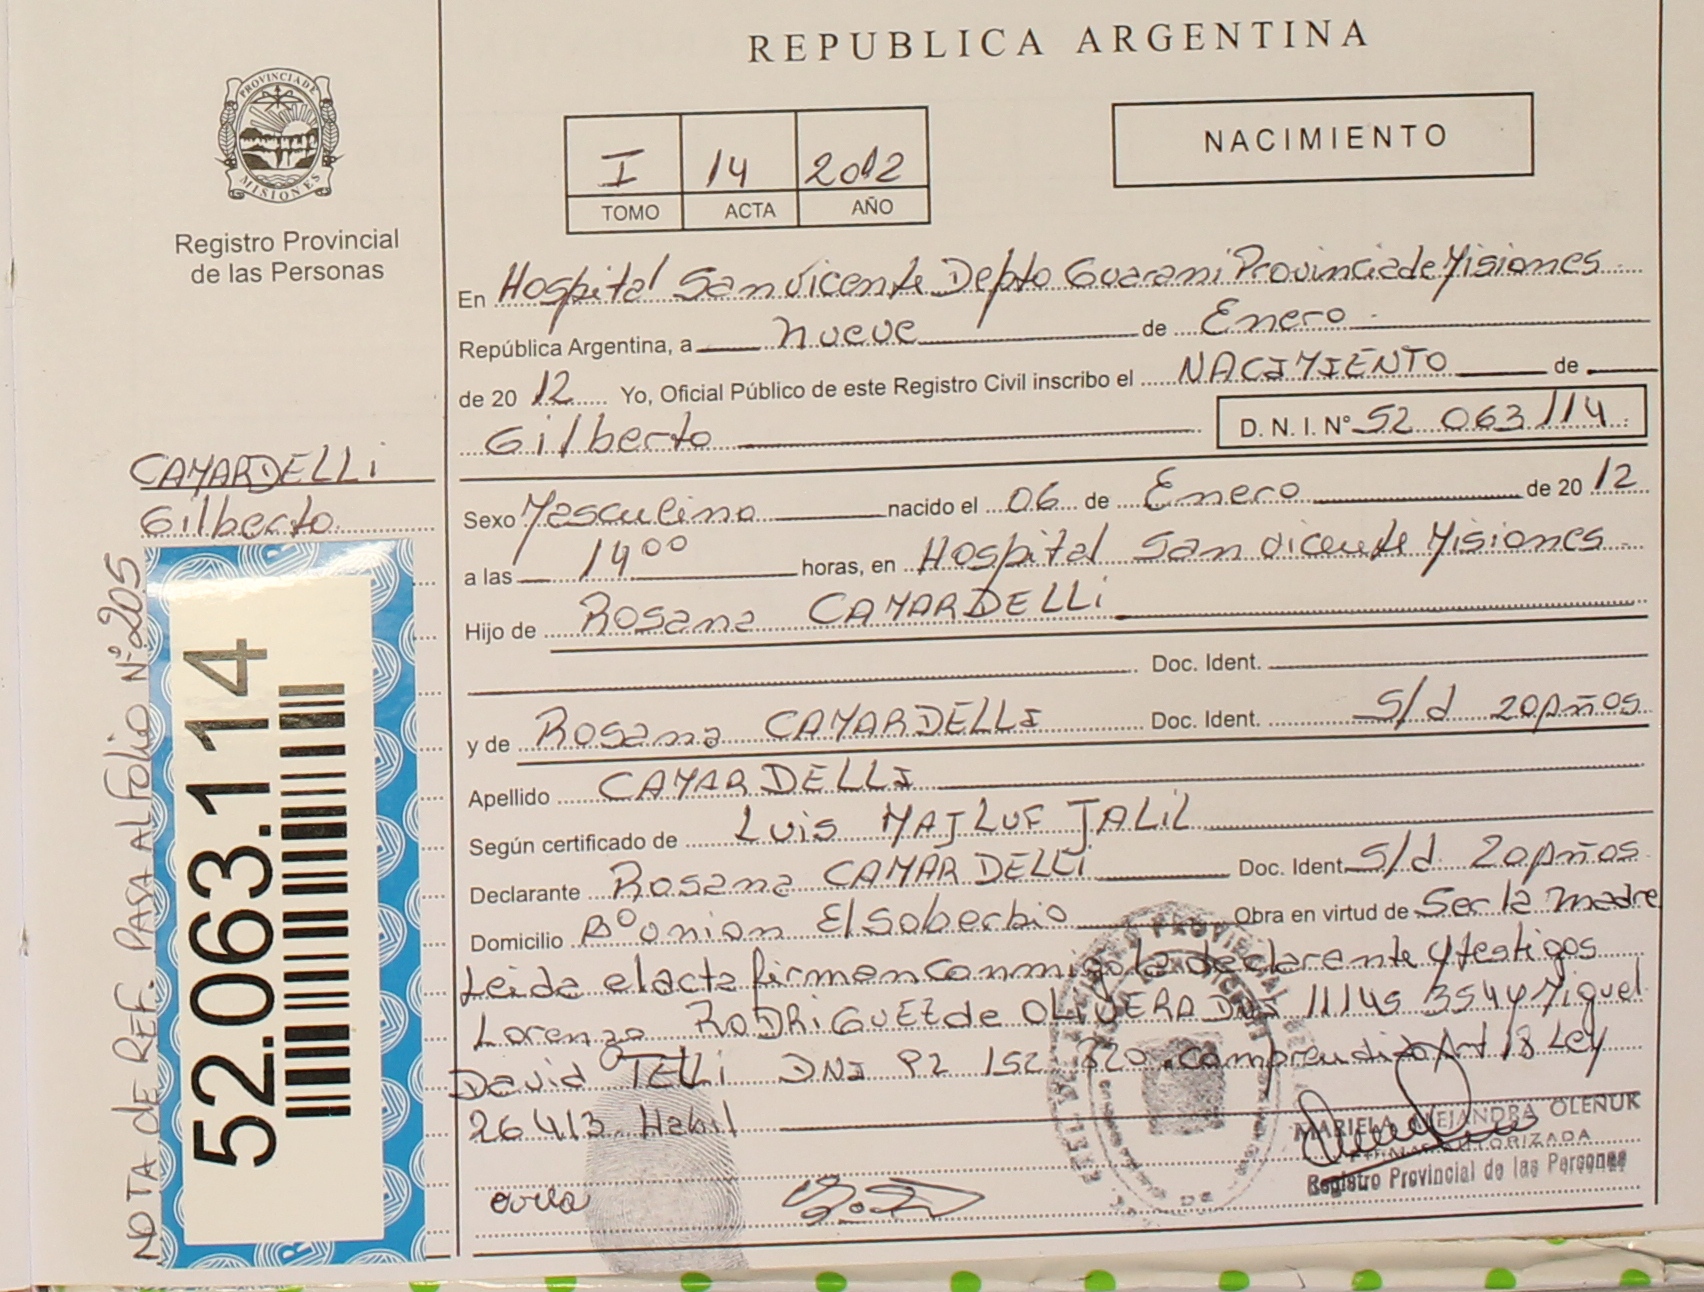 REPUBLICA ARGENTINA
PROVINCIA DE
MISIONES
Registro Provincial
de las Personas
I 14 2012
TOMO ACTA AÑO
NACIMIENTO
En Hospital San Vicente Depto Guarani Provincia de Misiones
República Argentina, a nueve de Enero
de 2012 Yo, Oficial Público de este Registro Civil inscribo el NACIMIENTO de
Gilberto D. N. I. Nº 52 063 114
CAMARDELLi
Gilberto
Sexo Masculino nacido el 06 de Enero de 2012
a las 14 00 horas, en Hospital San Vicente Misiones
Hijo de Rosana CAMARDELLi
Doc. Ident.
y de Rosana CAMARDELLI Doc. Ident. S/d 20 Años
Apellido CAMARDELLI
Según certificado de Luis MAJLUF JALIL
Declarante Rosana CAMARDELLI Doc. Ident. S/d 20 Años
Domicilio Bº Union El Soberbio Obra en virtud de Ser la madre
Leida el acta firman conmigo la declarante y testigos
Lorenzo RODRIGUEZ de OLIVERA DNI 11 145 354 y Miguel
David TELLi DNI 92 152 820. comprendido Art 18 Ley
26413 Habil
MARIELA ALEJANDRA OLENUK
AUTORIZADA
Registro Provincial de las Personas
NOTA de REF. PASA AL FOLIO Nº 205
52.063.114